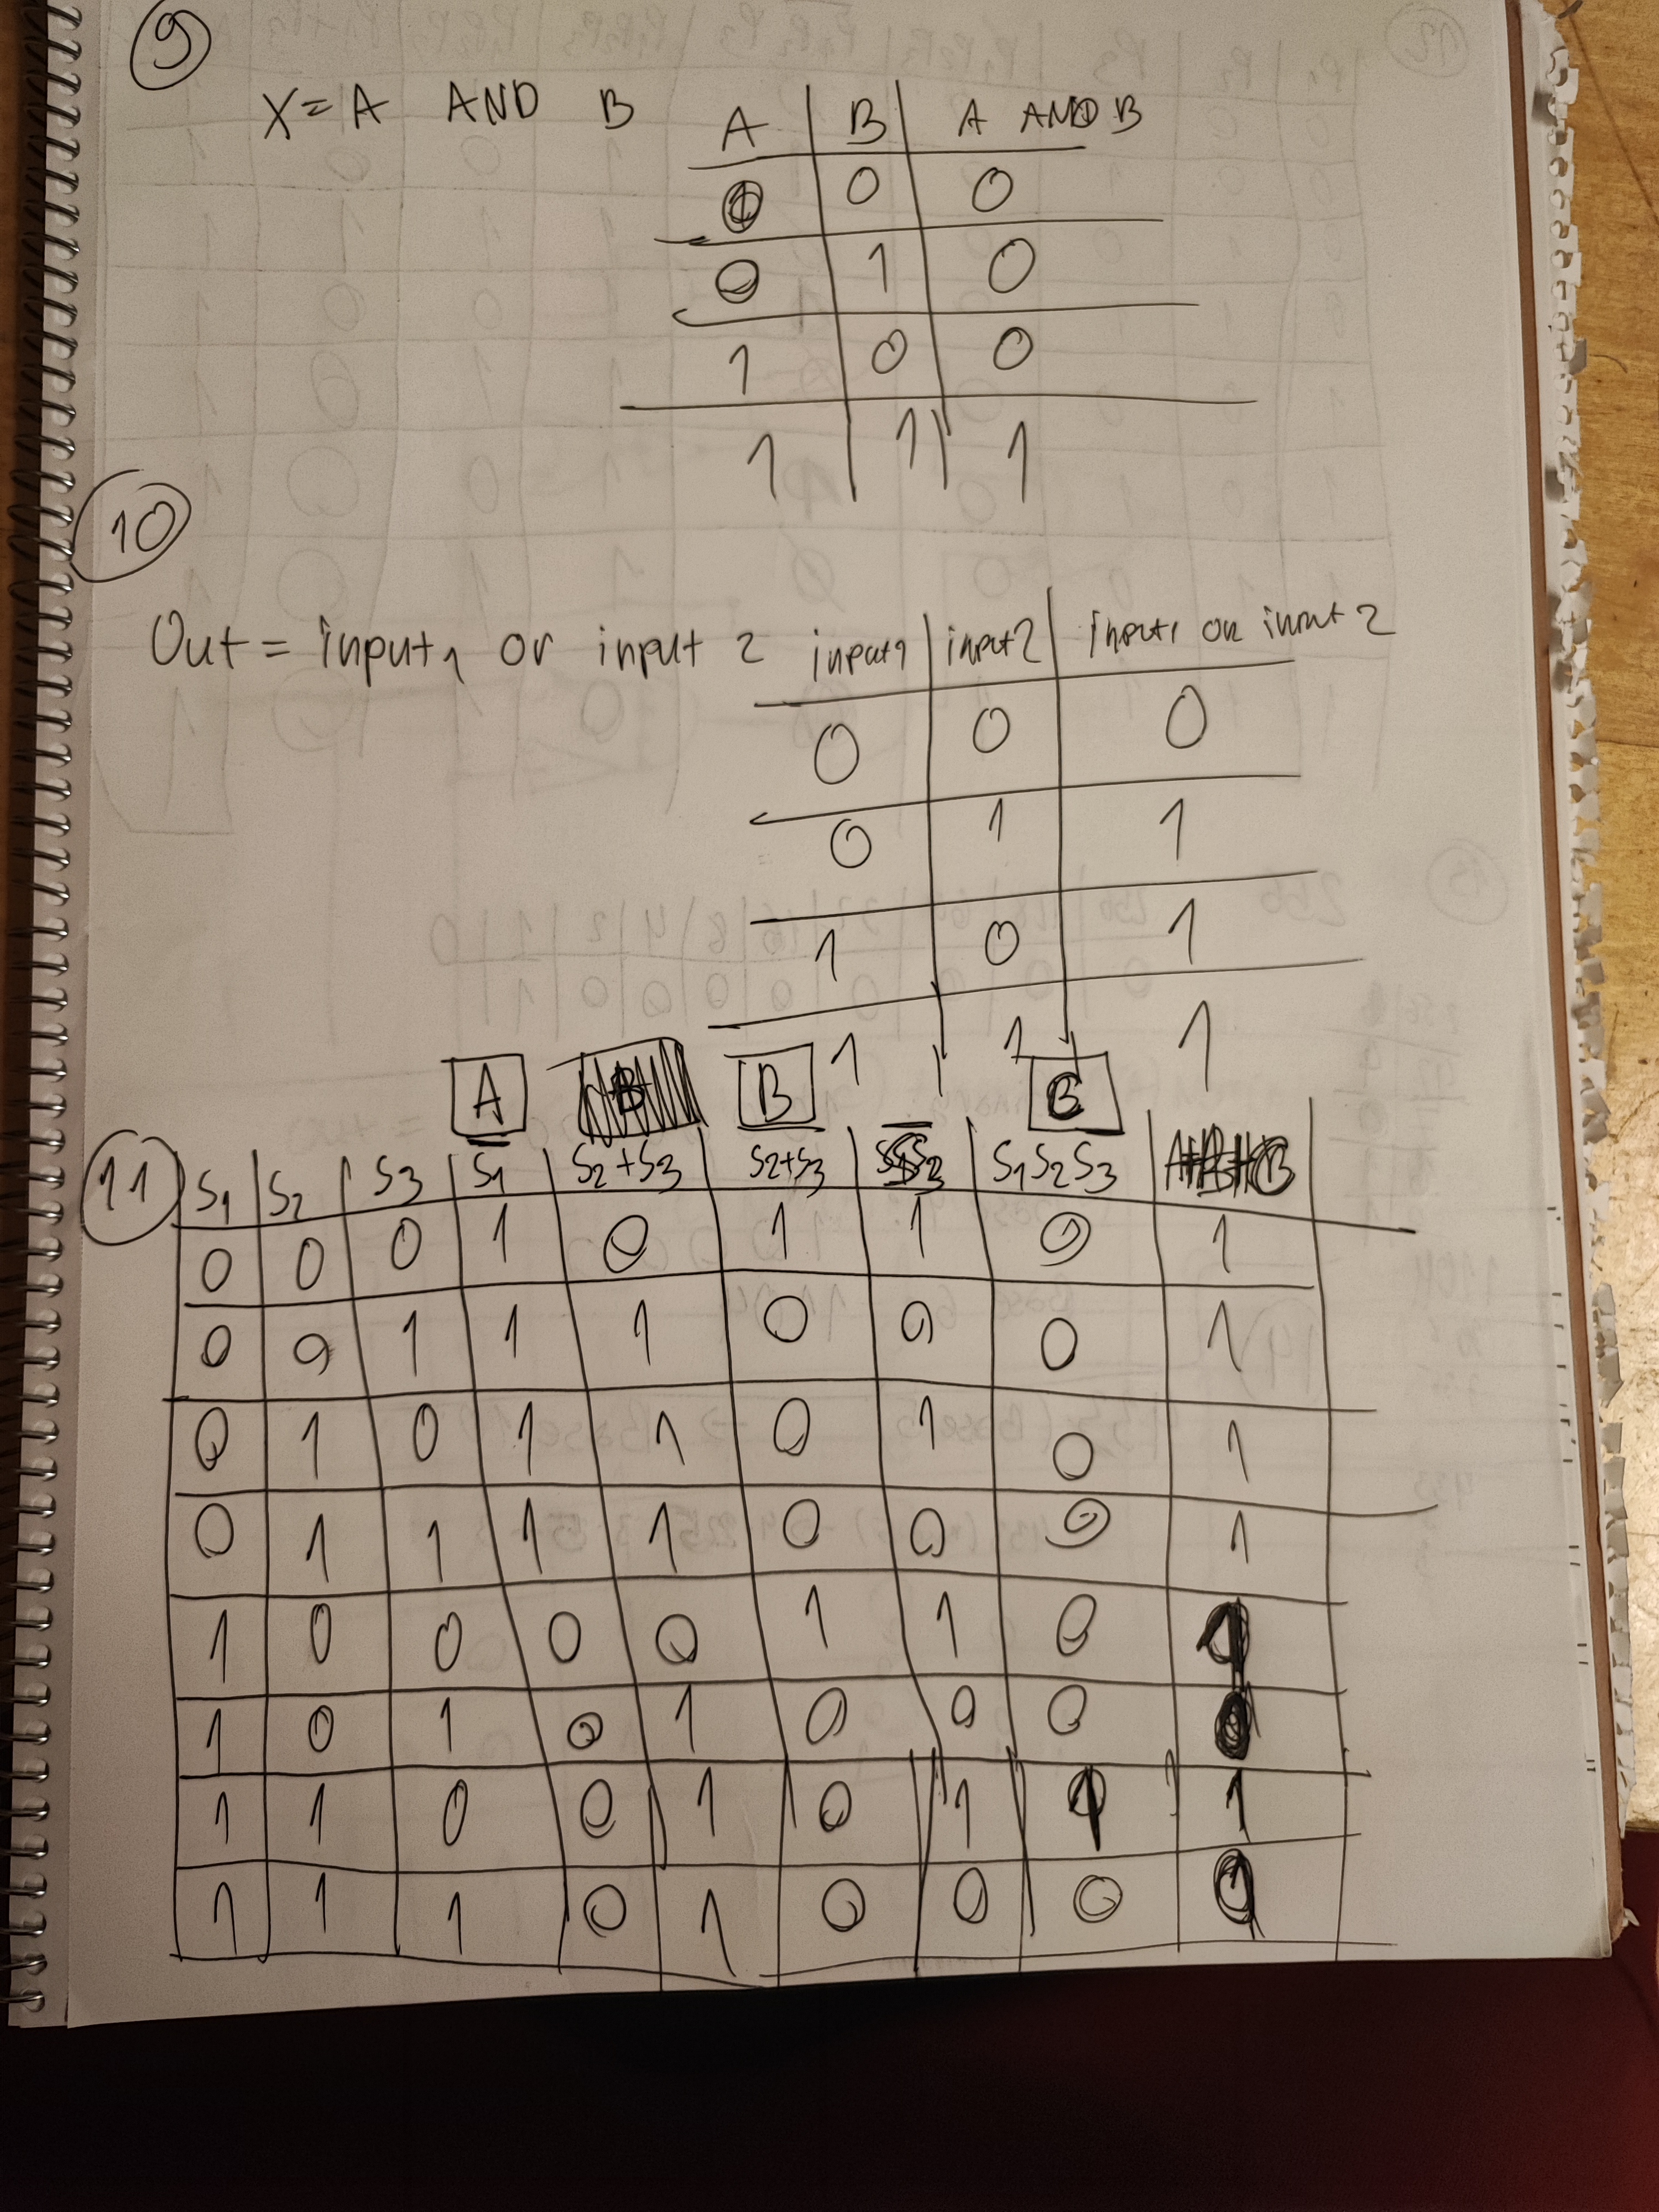 9
X = A AND B
A B A AND B
0 0
0 1 0
1 0 0
1 1 1
10
Out = input1 or input 2
input1 input2 input1 or input 2
0 0 0
0 1 1
1 0 1
1 1 1
A B C
11 S1 S2 S3 S̅1̅ S2+S3 S̅2̅+̅S̅3̅ S1S2S3
0 0 0 1 0 1 1 0 1
0 0 1 1 1 0 0 0 1
0 1 0 1 1 0 1 0 1
0 1 1 1 1 0 0 0 1
1 0 0 0 0 1 1 0
1 0 1 0 1 0 0 0
1 1 0 0 1 0 1 1 1
1 1 1 0 1 0 0 0